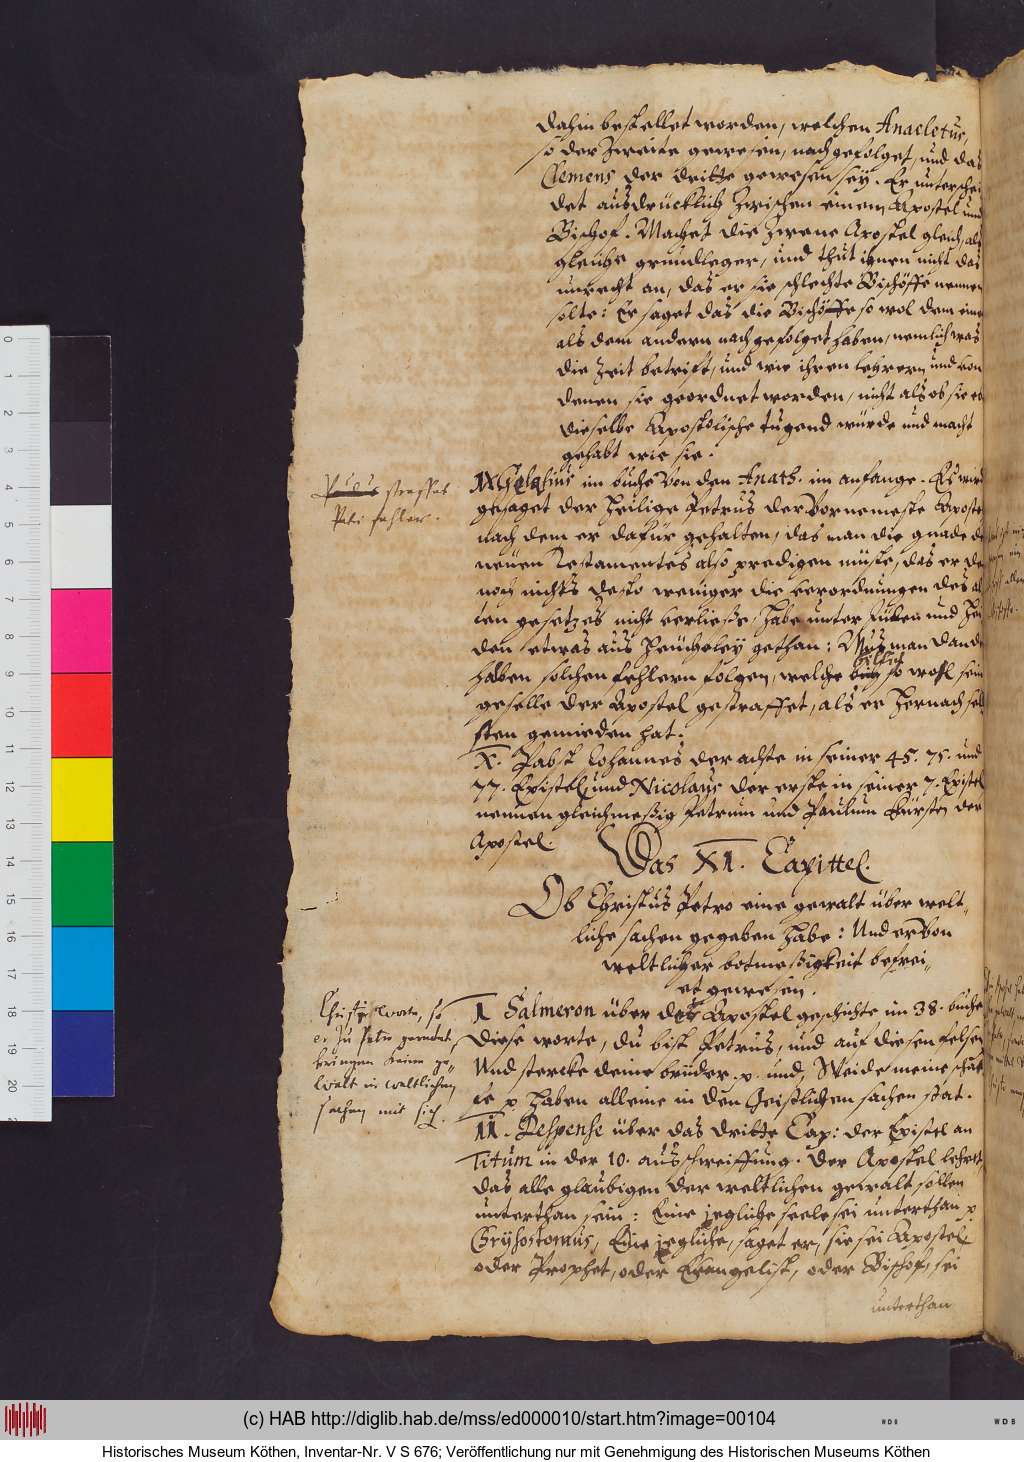 dahin bestellet worden, welchen Anacletus,
so der Zweite gewesen, nachgefolget, und das
Clemens der dritte gewesen sey. Er unterschei
det ausdrücklich Zwischen einem Apostel und
Bischof. Machet die Zwene Apostel gleich, als
gleube grundleger, und thut ihnen nicht das
unrecht an, das er sie schlechte Bischöffe nennen
solte: Er saget das die Bischöffe so wol dem einen
als dem andern nachgefolget haben, nemlich was
die Zeit betrift, und wie ihren lehrern, und von
denen sie geordnet worden, nicht als ob sie eb
dieselbe Apostolische tugend würde und macht
gehabt wie sie.
IX Gelasius im buche von den Anath. im anfange. Es wird
gesaget der heilige Petrus der Vornemeste Aposte
nach dem er dafür gehalten, das man die gnade de
neuen Testamentes also predigen müste, das er de
noch nichts desto weniger die verordnungen des al
ten gesetzes nicht verließe, habe unter Juden und Hei
den etwas aus heucheley gethan: Mus man dan de
haben solchen fehlern folgen, welche billich so wohl sein
geselle der Apostel gestraffet, als er hernach selb
sten gemieden hat.
Paulus straffet
Petri fehler.
X. Pabst Johannes der achte in seiner 45. 75. und
77. Epistel, und Nicolaus der erste in seiner 7. Epistel
nennen gleichmeßig Petrum und Paulum Fürsten der
Apostel.
Das XI. Capittel.
Ob Christus Petro eine gewalt über welt-
liche sachen gegeben habe: Und er Von
weltlicher botmeßigkeit befrei-
et gewesen.
Christi Worte, so
er zu Petro geredet,
bringen keine ge-
walt in weltlichen
sachen mit sich.
I Salmeron über der Apostel geschichte im 38. buche
diese worte, du bist Petrus, und auf diesen felsen
Und stercke deine brüder. p. und, Weide meine schäf
fe p haben alleine in den Geistlichen sachen stat.
II. Despense über das dritte Cap: der Epistel an
Titum in der 10. ausschweiffung. Der Apostel lehret
das alle glaubigen der weltlichen gewalt sollen
unterthan sein: Eine jegliche seele sei unterthan p
Chrysostomus, Eine jegliche, saget er, sie sei Apostel,
oder Prophet, oder Evangelist, oder Bischof, sei
unterthan
0
1
2
3
4
5
6
7
8
9
10
11
12
13
14
15
16
17
18
19
20
(c) HAB http://diglib.hab.de/mss/ed000010/start.htm?image=00104
Historisches Museum Köthen, Inventar-Nr. V S 676; Veröffentlichung nur mit Genehmigung des Historischen Museums Köthen